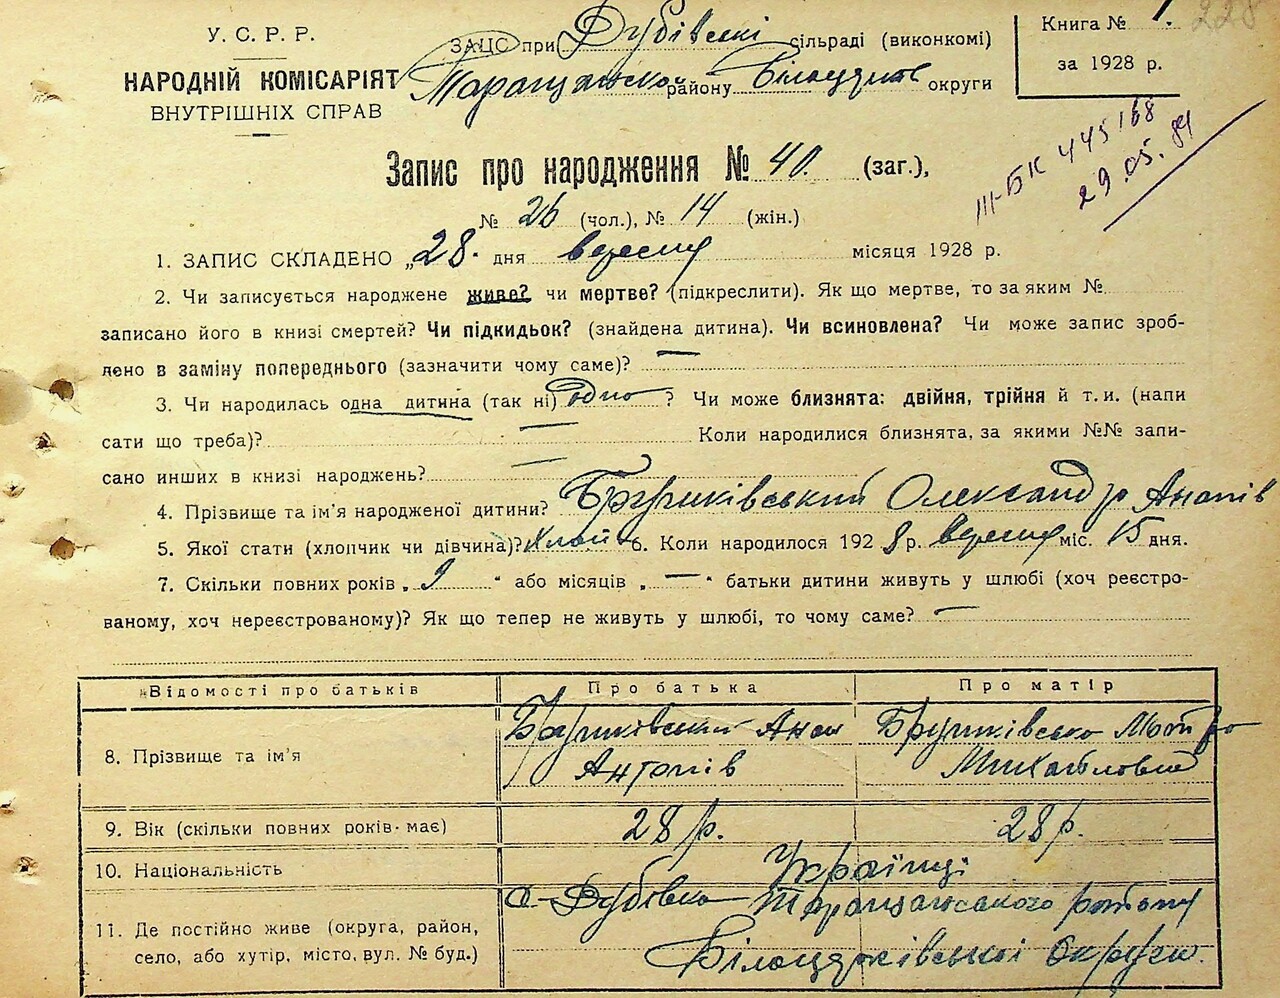 228
У. С. Р. Р.
НАРОДНІЙ КОМІСАРІЯТ
ВНУТРІШНІХ СПРАВ
ЗАЦС при Дубівській сільраді (виконкомі)
Таращанского району Білоцерків округи
Книга №
за 1928 р.
III-БК 445168
29.05.84
Запис про народження № 40. (заг.),
№ 26 (чол.), № 14 (жін.)
1. ЗАПИС СКЛАДЕНО „28" дня вересня місяця 1928 р.
2. Чи записується народжене живе? чи мертве? (підкреслити). Як що мертве, то за яким №
записано його в книзі смертей? Чи підкидьок? (знайдена дитина). Чи всиновлена? Чи може запис зроб-
лено в заміну попереднього (зазначити чому саме)? —
3. Чи народилась одна дитина (так ні) одно ? Чи може близнята: двійня, трійня й т. и. (напи
сати що треба)? — Коли народилися близнята, за якими №№ запи-
сано инших в книзі народжень? —
4. Прізвище та ім'я народженої дитини? Бруриківський Олександр
5. Якої стати (хлопчик чи дівчина)? 6. Коли народилося 1928 р. вересня міс. 15 дня.
7. Скільки повних років „9" або місяців „—" батьки дитини живуть у шлюбі (хоч реєстро-
ваному, хоч нереєстрованому)? Як що тепер не живуть у шлюбі, то чому саме? —
Відомості про батьків Про батька Про матір
8. Прізвище та ім'я
Антонів Михайловна
9. Вік (скільки повних років має) 28 р. 28 р.
10. Національність Українці
11. Де постійно живе (округа, район,
село, або хутір, місто, вул. № буд.)
с. Дубівка Таращанського району
Білоцерківської Округи.